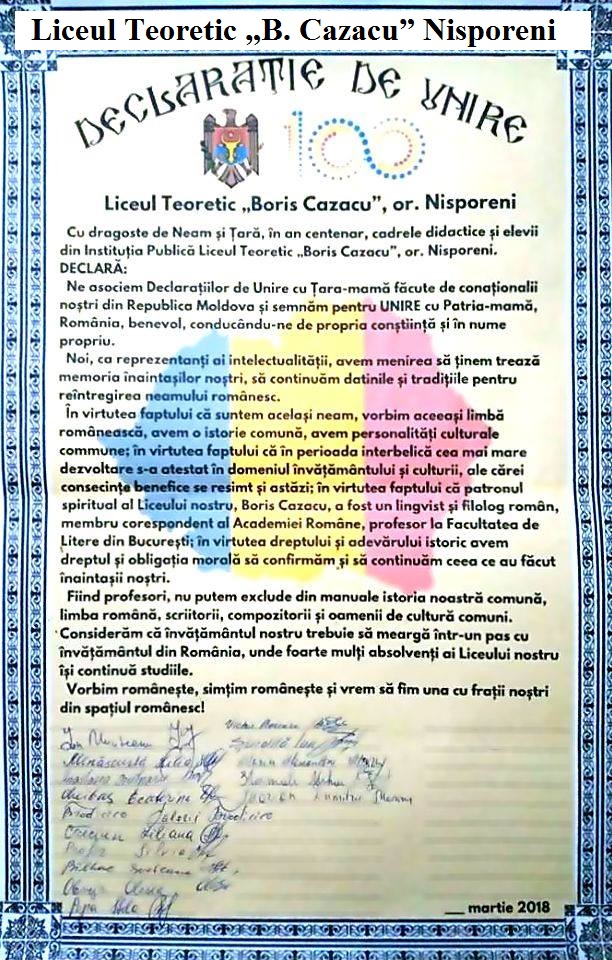 Liceul Teoretic „B. Cazacu” Nisporeni
DECLARAȚIE DE UNIRE
100
Liceul Teoretic „Boris Cazacu”, or. Nisporeni
Cu dragoste de Neam și Țară, în an centenar, cadrele didactice și elevii
din Instituția Publică Liceul Teoretic „Boris Cazacu”, or. Nisporeni.
DECLARĂ:
Ne asociem Declarațiilor de Unire cu Țara-mamă făcute de conaționalii
noștri din Republica Moldova și semnăm pentru UNIRE cu Patria-mamă,
România, benevol, conducându-ne de propria conștiință și în nume
propriu.
Noi, ca reprezentanți ai intelectualității, avem menirea să ținem trează
memoria înaintașilor noștri, să continuăm datinile și tradițiile pentru
reîntregirea neamului românesc.
În virtutea faptului că suntem același neam, vorbim aceeași limbă
românească, avem o istorie comună, avem personalități culturale
commune; în virtutea faptului că în perioada interbelică cea mai mare
dezvoltare s-a atestat în domeniul învățământului și culturii, ale cărei
consecințe benefice se resimt și astăzi; în virtutea faptului că patronul
spiritual al Liceului nostru, Boris Cazacu, a fost un lingvist și filolog român,
membru corespondent al Academiei Române, profesor la Facultatea de
Litere din București; în virtutea dreptului și adevărului istoric avem
dreptul și obligația morală să confirmăm și să continuăm ceea ce au făcut
înaintașii noștri.
Fiind profesori, nu putem exclude din manuale istoria noastră comună,
limba română, scriitorii, compozitorii și oamenii de cultură comuni.
Considerăm că învățământul nostru trebuie să meargă într-un pas cu
învățământul din România, unde foarte mulți absolvenți ai Liceului nostru
își continuă studiile.
Vorbim românește, simțim românește și vrem să fim una cu frații noștri
din spațiul românesc!
Ion
Ecaterina Dumitru
Liliana
Silvia
Svetlana
Olesea
___ martie 2018